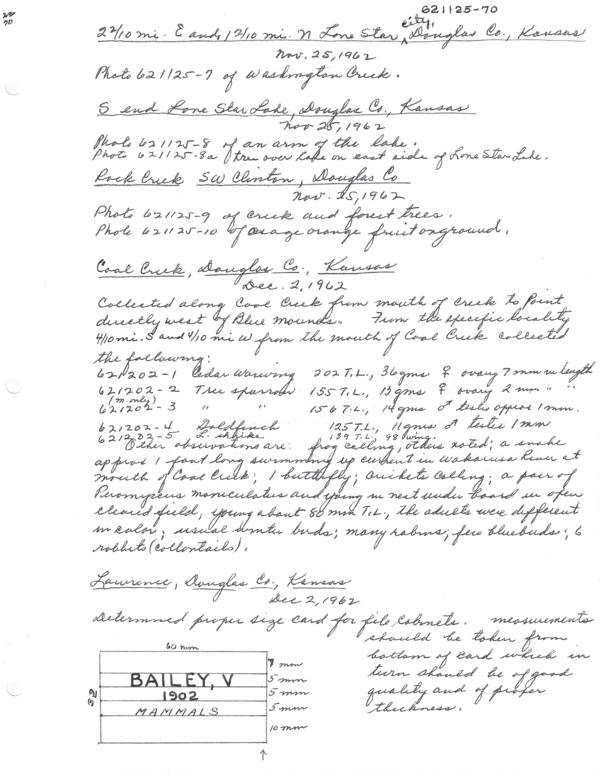 621125-70
70
2 2/10 mi. E and 1 2/10 mi. N Lone Star city, Douglas Co., Kansas
Nov. 25, 1962
Photo 621125-7 of Washington Creek.
S end Lone Star Lake, Douglas Co., Kansas
Nov 25, 1962
Photo 621125-8 of an arm of the lake.
Photo 621125-8a tree over lake on east side of Lone Star Lake.
Rock Creek SW Clinton, Douglas Co
Nov. 25, 1962
Photo 621125-9 of creek and forest trees.
Photo 621125-10 of osage orange fruit on ground.
Coal Creek, Douglas Co., Kansas
Dec. 2, 1962
Collected along Coal Creek from mouth of creek to Point
directly west of Blue Mounds. From the specific locality
4/10 mi. S and 4/10 mi W from the mouth of Coal Creek collected
the following:
621202-1 Cedar Waxwing 202 T.L., 36 gms ♀ ovary 7 mm in length
621202-2 Tree sparrow 155 T.L., 13 gms ♀ ovary 2 mm " "
(m. only)
621202-3 " " 156 T.L., 14 gms ♂ testes approx 1 mm.
621202-4 Goldfinch 125 T.L., 11 gms ♂ testes 1 mm
621222-5 L. shrike 139 T.L., 98 wing.
Other observations are: frog calling, others noted; a snake
approx 1 foot long swimming up current in Wakarusa River at
mouth of Coal Creek; 1 butterfly; crickets calling; a pair of
Peromyscus maniculatus and young in nest under board in open
cleared field, young about 80 mm T.L., the adults were different
in color; usual winter birds; many robins; few bluebirds; 6
rabbits (cottontails).
Lawrence, Douglas Co., Kansas
Dec 2, 1962
Determined proper size card for file cabinets. measurements
should be taken from
bottom of card which in
turn should be of good
quality and of proper
thickness.
60 mm
32
BAILEY, V
1902
MAMMALS
7 mm
5 mm
5 mm
5 mm
10 mm